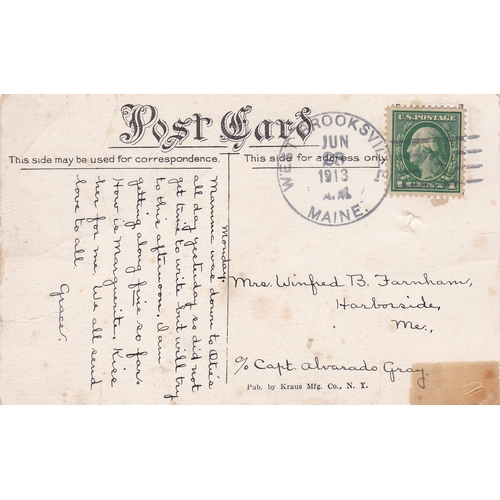 Post Card
This side may be used for correspondence.
This side for address only
WEST BROOKSVILLE,
JUN
1913
A.M.
MAINE.
U.S. POSTAGE
1 CENT 1
Monday.
Mamma was down to Otie's
all day yesterday so did not
get time to write but will try
to this afternoon. I am
getting along fine so far.
How is Marguerite. Kiss
her for me. We all send
love to all
Grace.
Mrs. Winfred B. Farnham,
Harborside,
Me.,
c/o Capt. Alvarado Gray.
Pub. by Kraus Mfg. Co., N. Y.